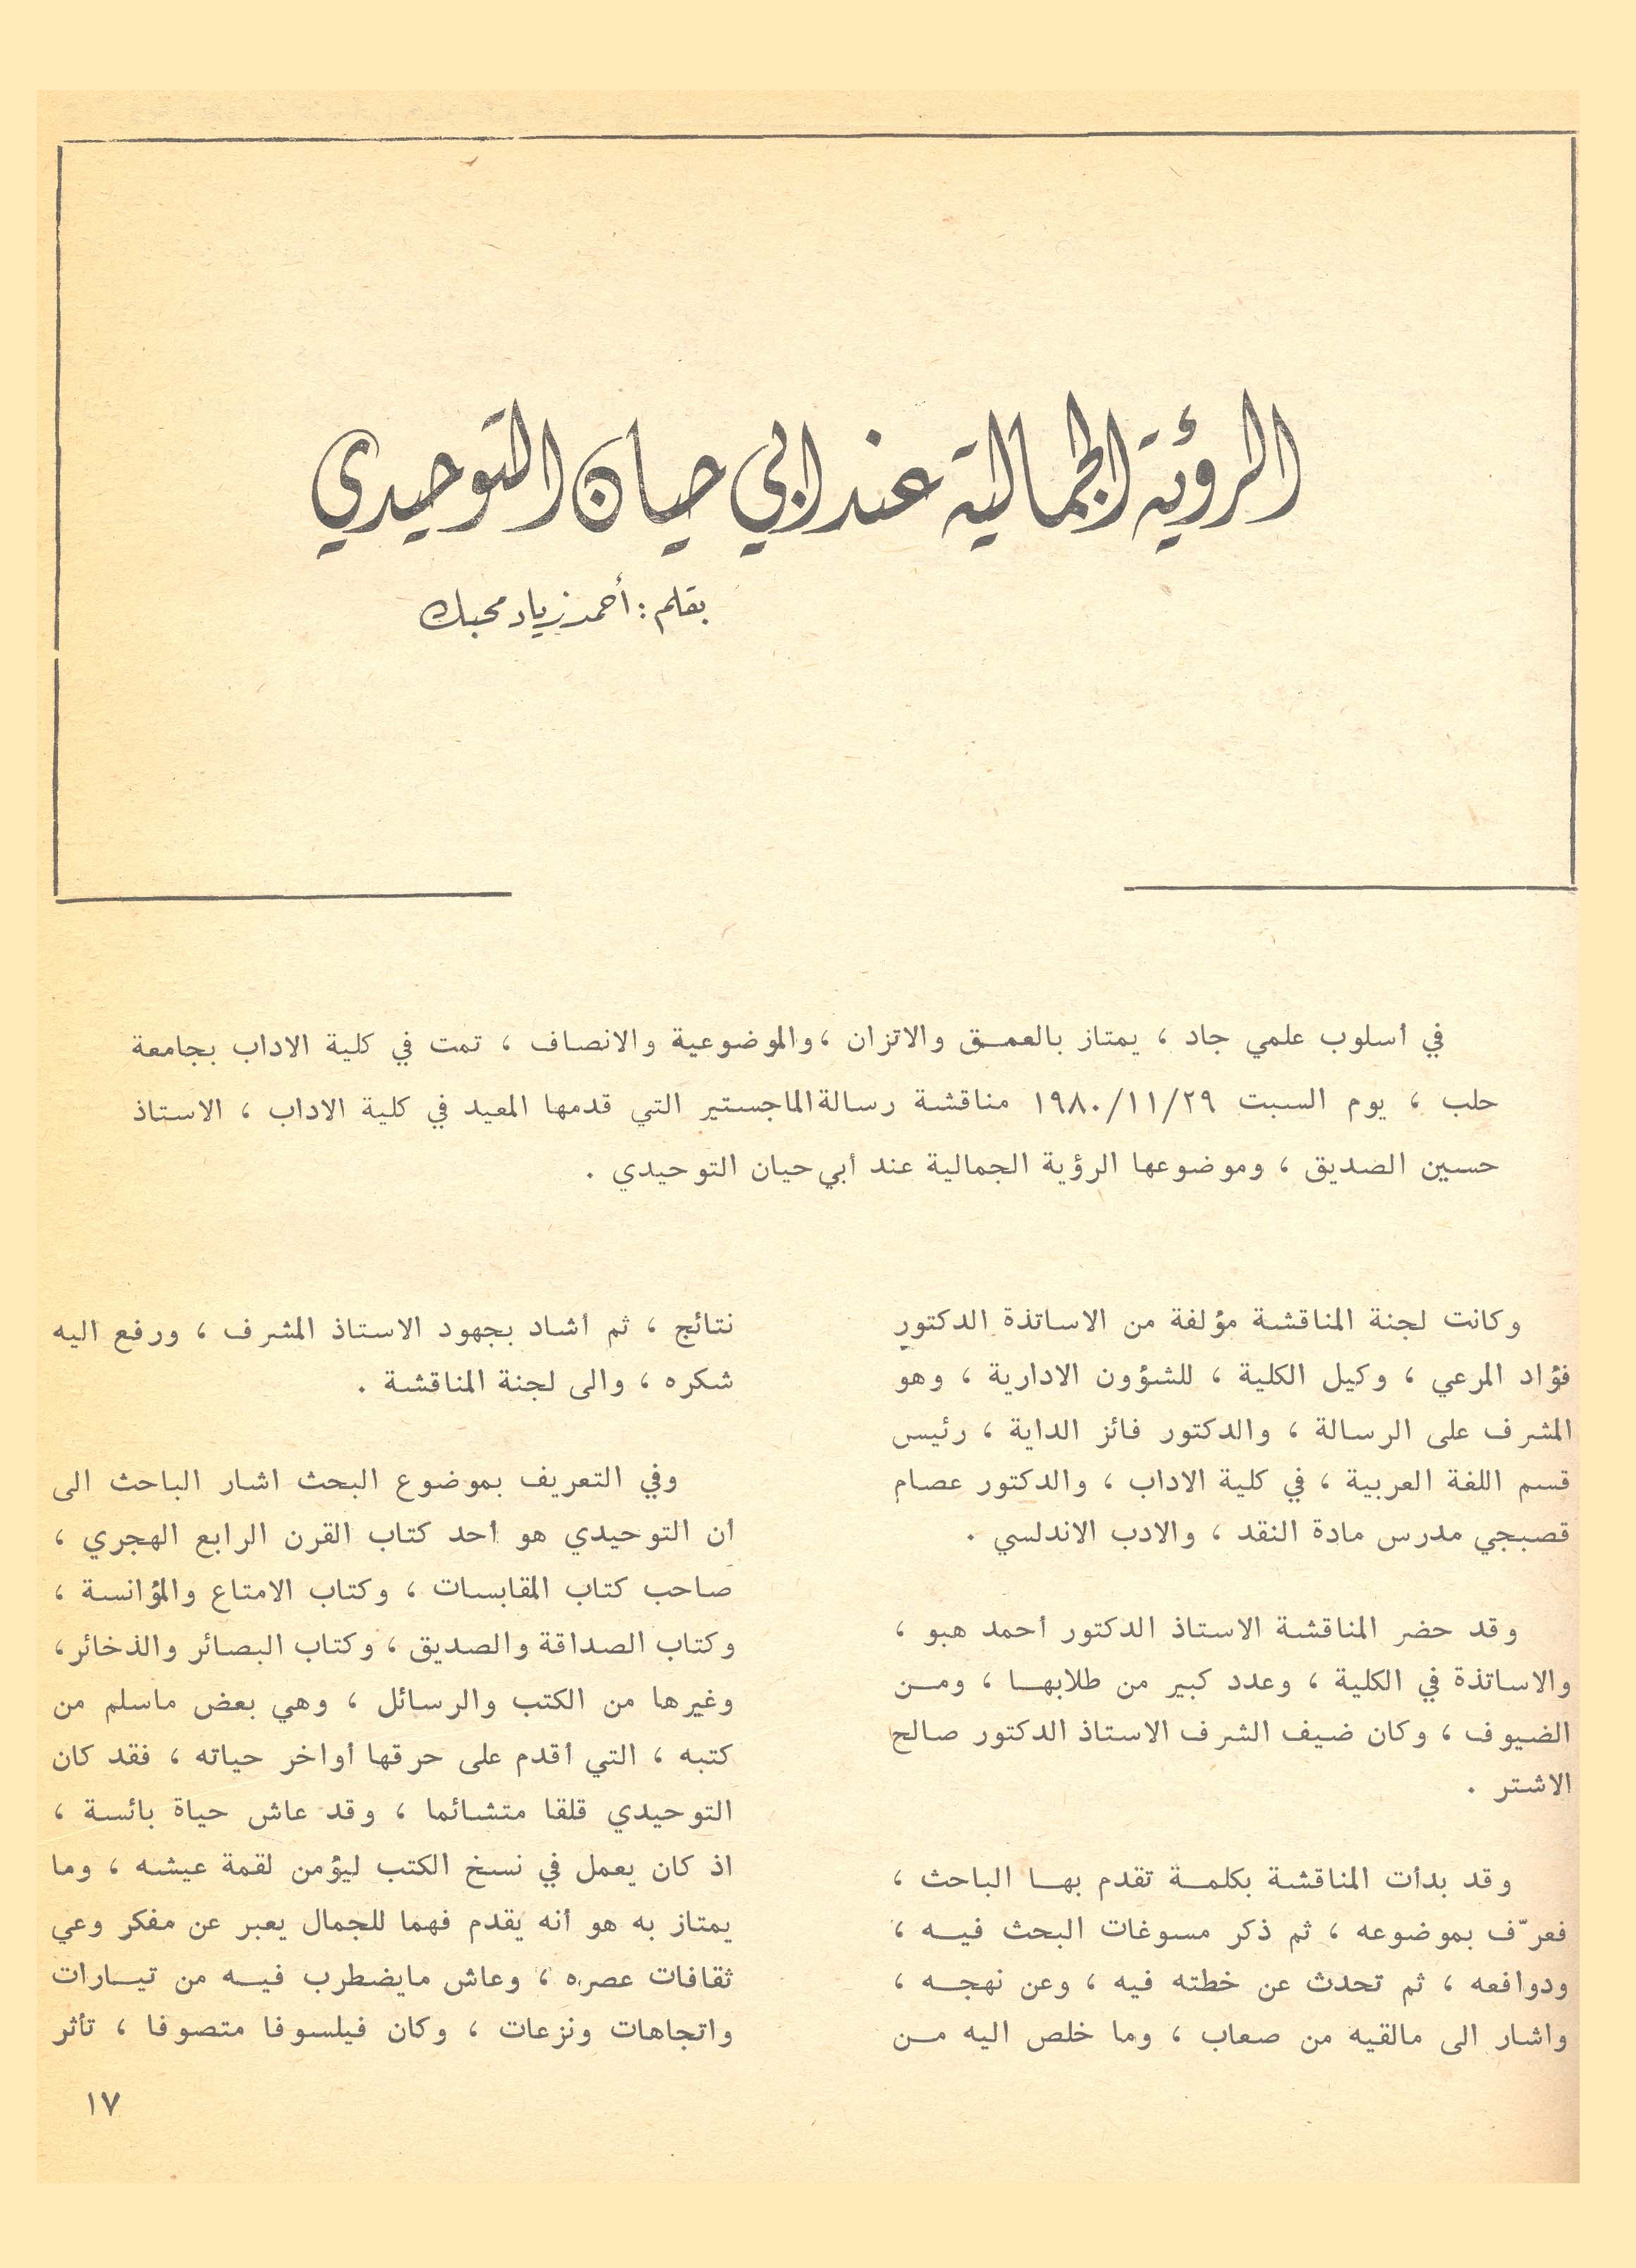 الرؤية الجمالية عند ابي حيان التوحيدي
بقلم : أحمد زياد محبك
في أسلوب علمي جاد ، يمتاز بالعمـق والاتزان ، والموضوعية والانصاف ، تمت في كلية الاداب بجامعة
حلب ، يوم السبت ١٩٨٠/١١/٢٩ مناقشة رسالة الماجستير التي قدمها المعيد في كلية الاداب ، الاستاذ
حسين الصديق ، وموضوعها الرؤية الجمالية عند أبي حيان التوحيدي .
وكانت لجنة المناقشة مؤلفة من الاساتذة الدكتور
فؤاد المرعي ، وكيل الكلية ، للشؤون الادارية ، وهو
المشرف على الرسالة ، والدكتور فائز الداية ، رئيس
قسم اللغة العربية ، في كلية الاداب ، والدكتور عصام
قصبجي مدرس مادة النقد ، والادب الاندلسي .
وقد حضر المناقشة الاستاذ الدكتور أحمد هبو ،
والاساتذة في الكلية ، وعدد كبير من طلابهـا ، ومـن
الضيوف ، وكان ضيف الشرف الاستاذ الدكتور صالح
الاشتر .
وقد بدأت المناقشة بكلمـة تقدم بهـا الباحث ،
فعرّف بموضوعه ، ثم ذكر مسوغات البحث فيـه ،
ودوافعه ، ثم تحدث عن خطته فيه ، وعن نهجـه ،
واشار الى مالقيه من صعاب ، وما خلص اليه مـن
نتائج ، ثم أشاد بجهود الاستاذ المشرف ، ورفع اليه
شكره ، والى لجنة المناقشة .
وفي التعريف بموضوع البحث اشار الباحث الى
أن التوحيدي هو أحد كتاب القرن الرابع الهجري ،
صاحب كتاب المقابسات ، وكتاب الامتاع والمؤانسة ،
وكتاب الصداقة والصديق ، وكتاب البصائر والذخائر ،
وغيرها من الكتب والرسائل ، وهي بعض ماسلم من
كتبه ، التي أقدم على حرقها أواخر حياته ، فقد كان
التوحيدي قلقا متشائما ، وقد عاش حياة بائسة ،
اذ كان يعمل في نسخ الكتب ليؤمن لقمة عيشه ، وما
يمتاز به هو أنه يقدم فهما للجمال يعبر عن مفكر وعي
ثقافات عصره ، وعاش مايضطرب فيـه من تيـارات
واتجاهات ونزعات ، وكان فيلسوفا متصوفا ، تأثر
١٧